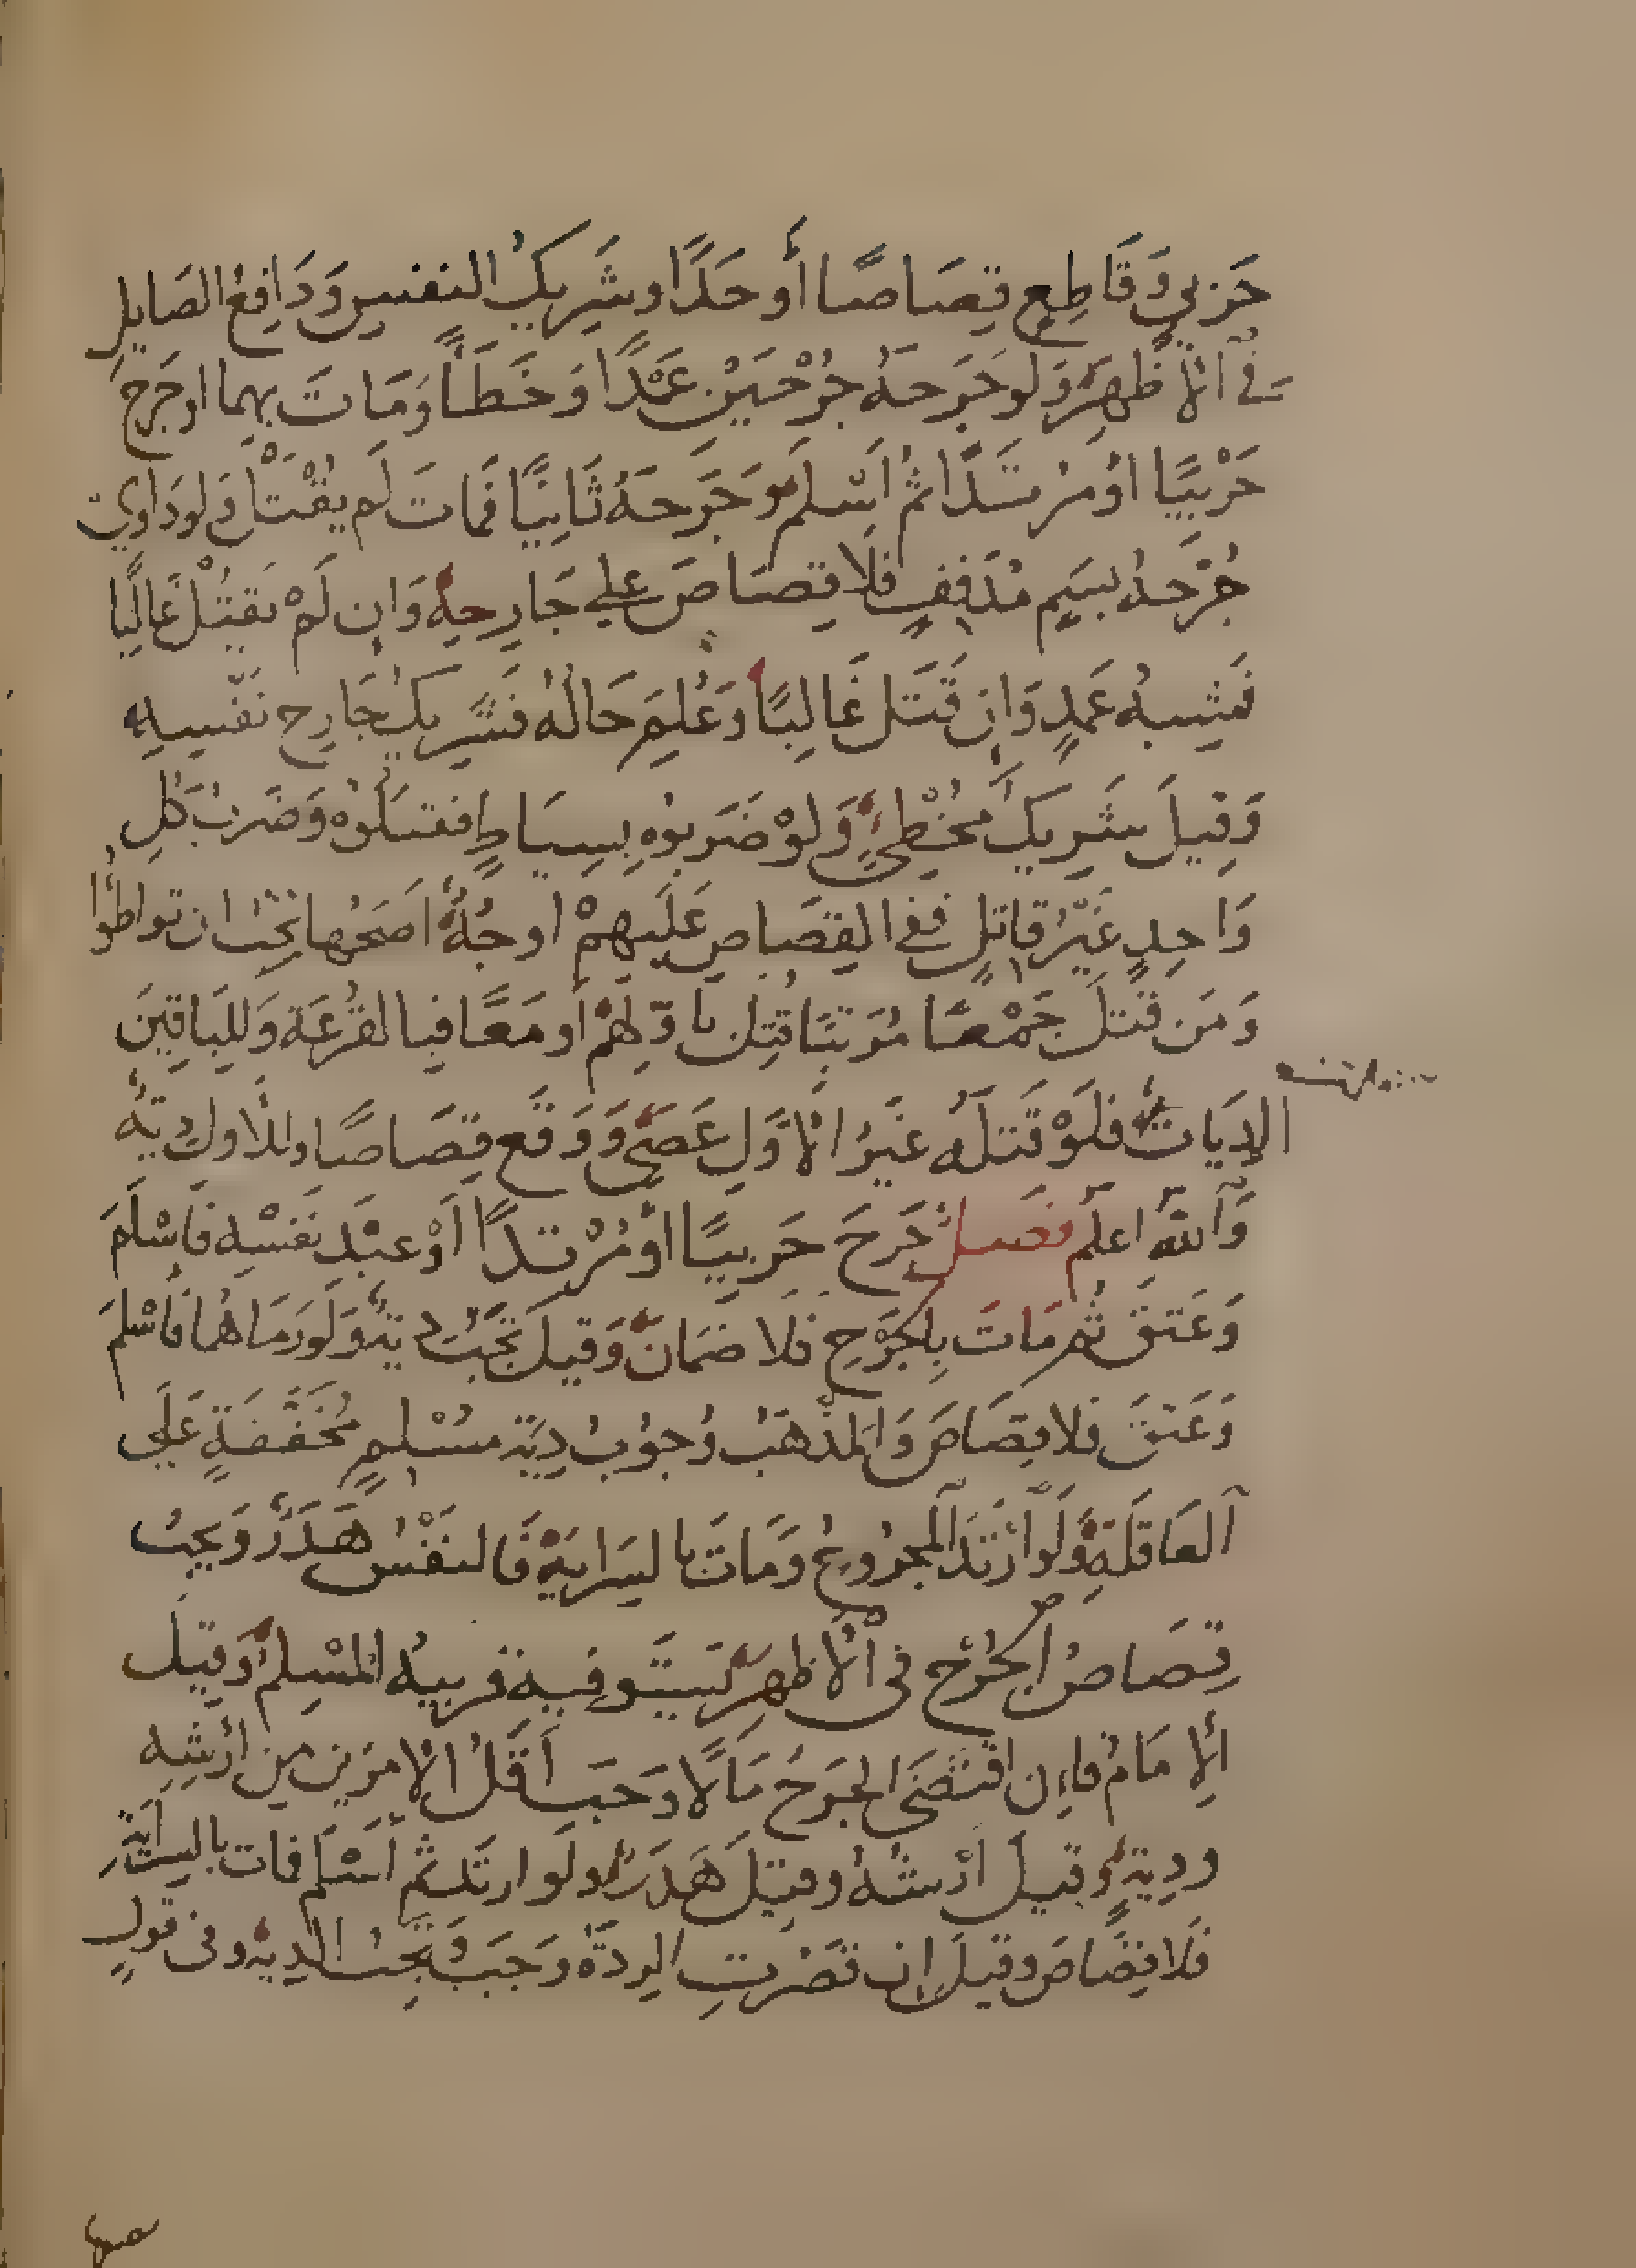 حَرْبِيٍّ وَقَاطِعٍ قِصَاصًا أَوْ حَدًّا وشَرِيكُ النفسِ وَدَافِعُ الصَايلِ
فى الأَظهرِ وَلو جَرَحَهُ جُرْحَيْنِ عَمْدًا وَخَطَأً وَمَاتَ بهِما اوجَرَحَ
حَرْبِيًّا اوْ مُرْتَدًّا ثُم اَسْلمَ وَجَرَحَهُ ثَانِيًا فَماتَ لَم يُقْتَلْ وَلو دَاوَى
جُرْحَهُ بِسَمٍ مُذَفِفٍ فَلَا قِصَاصَ علي جَارِحِهِ وَإن لَمْ يَقْتُلْ غَالِبًا
فَشِبهُ عَمدٍ وَإن قَتَلَ غَالِبًا وَعُلِمَ حَالُهُ فَشَرِيكُ جَارِحِ نَفْسِهِ
وَقِيلَ شَرِيكُ مُخْطِئٍ وَلَوْ ضَرَبوُهِ بِسِيَاطٍ فقتلَوُه وَضَربُ كُلِ
وَاحِدٍ غَيْرُ قاتلٍ ففي القِصَاصِ عَلَيهِمْ اوجُهٌ اَصَحُها يَجِبُ ان تواطؤُا
وَمَن قَتَلَ جَمْعًا مُرَتبًا قُتِلَ باوّلِهِمْ اَو مَعًا فبِالقُرْعَة وَللِبَاقِينَ
الدِيَاتُ فلَوْ قَتلَهُ غَيْرُ الأوَّلِ عَصَى وَوَقَع قِصَاصًا وللأَوَلِ دِيَةٌ
وَاللهُ اعلَم فَصلٌ جَرَحَ حَرْبِيًا أوْ مُرْتدًا اَوْ عبْدَ نَفسْهِ فَاَسْلَمَ
وَعَتقَ ثُم مَاتَ بِالجَرْحِ فَلا ضَمَانَ وَقيلَ تَجبُ دِيَةٌ وَلَو رَمَاهُما فَأَسْلمَ
وَعَتقَ فَلا قِصَاصَ وَالمذْهَبُ وُجوُبُ دِيَةِ مُسْلمٍ مُخَفَّفَةٍ عَلَى
العَاقلَةِ وَلَوْ ارْتَدَ المجرُوحُ وَمَاتَ بالسِرَايَةِ فَالنفْسُ هَدَرٌ وَيجبُ
قِصَاصُ الجُرْحِ فى الأَظهرِ يَسْتَوفيِه قريبهُ المُسْلِمُ وَقِيلَ
الإمَامُ فاءِن اقْتَضَى الجَرْحُ مَالًا وَجَبَ أَقَلُّ الاَمْرَيْنِ مِن اَرْشِهِ
ودِيَةٍ وَقيلَ اَرْشُهُ وقِيلَ هَدَرٌ ولَو ارتَد ثُم اَسْلَمَ فمات بالسِرَايَةِ
فَلا قِصَاصَ وقيلَ إن قَصُرَتِ الردَةُ وَجَبَ وَتَجِبُ الدِيَةُ وفى قولٍ